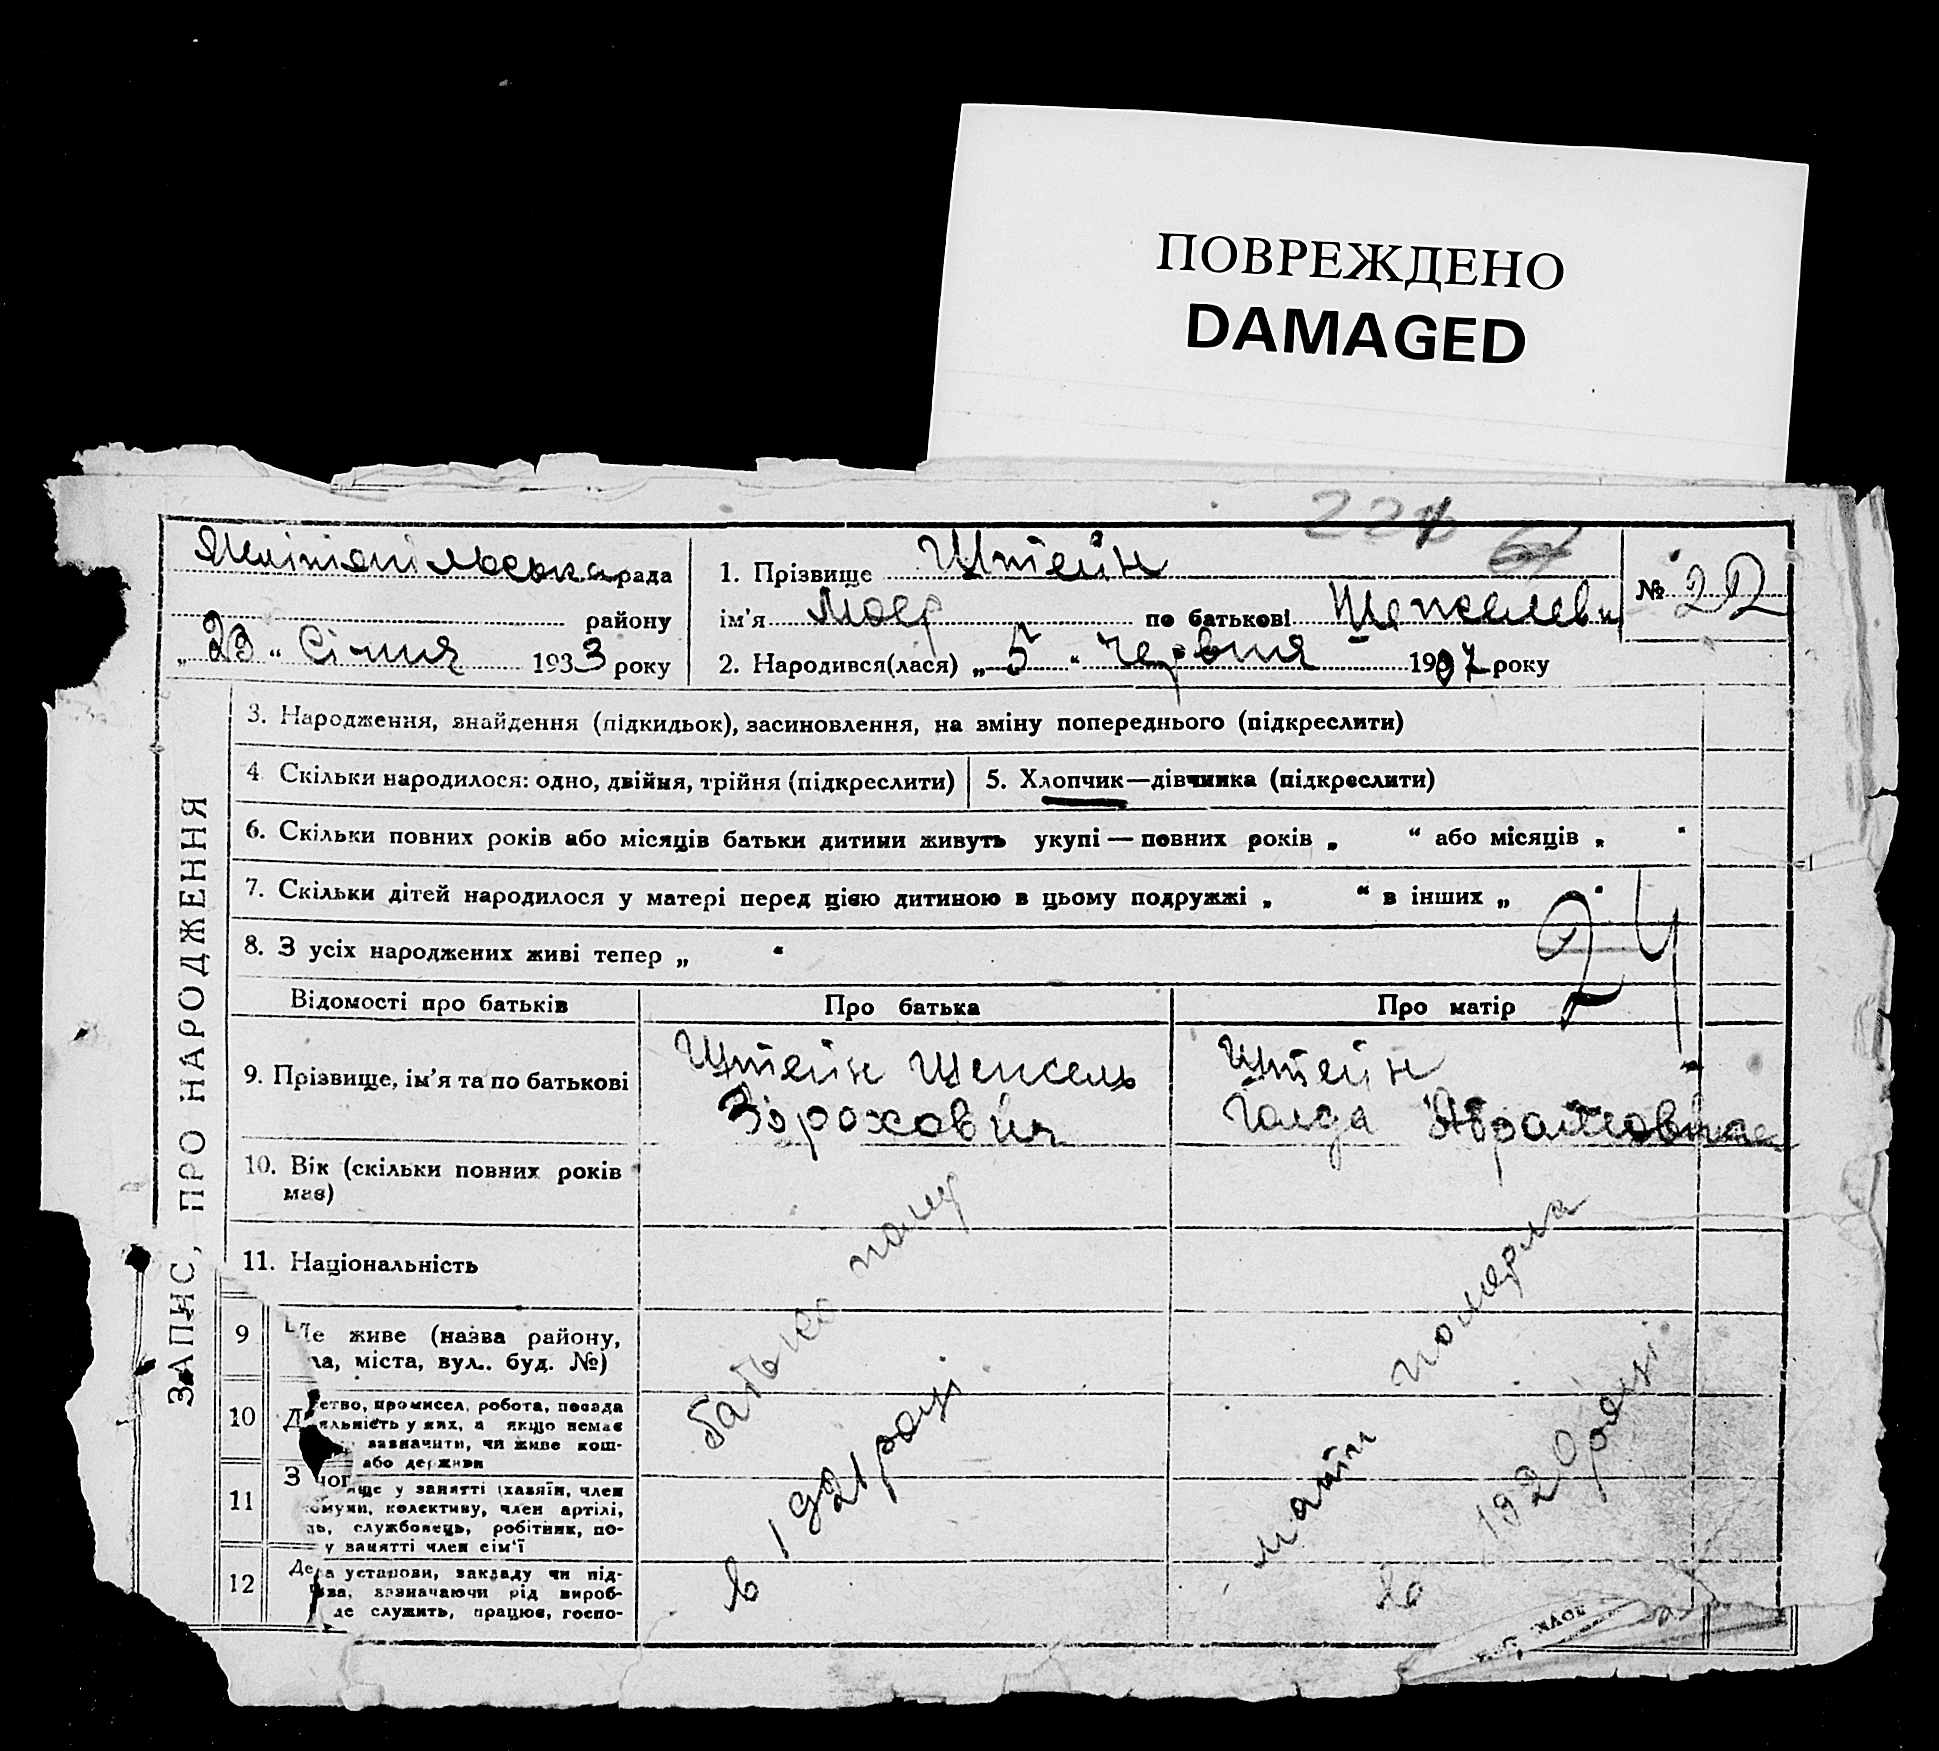 ПОВРЕЖДЕНО
DAMAGED
рада
району
„23“ Січня 1933 року
1. Прізвище Штейн
ім'я Моер по батькові
2. Народився(лася) „5“ червня 1907 року
№ 22
ЗАПИС, ПРО НАРОДЖЕННЯ
3. Народження, знайдення (підкидьок), засиновлення, на зміну попереднього (підкреслити)
4. Скільки народилося: одно, двійня, трійня (підкреслити)
5. Хлопчик—дівчинка (підкреслити)
6. Скільки повних років або місяців батьки дитини живуть укупі — повних років „ “ або місяців „ “
7. Скільки дітей народилося у матері перед цією дитиною в цьому подружжі „ “ в інших „ “
24
8. З усіх народжених живі тепер „ “
Відомості про батьків
Про батька
Про матір
9. Прізвище, ім'я та по батькові
Штейн Шепсель
Зорохович
Штейн
Голда Абрамовна
10. Вік (скільки повних років
має)
11. Національність
9
живе (назва району,
міста, вул. буд. №)
10
промисел, робота, посада
у них, а якщо немає
зазначити, чи живе кош-
або держави
11
у занятті (хазяїн, член
колективу, член артілі,
службовець, робітник, по-
у занятті член сім'ї
12
установи, закладу чи під-
зазначаючи рід вироб-
де служить, працює, госпо-
батько помер
в 1921 році
мати померла
в 1920 році